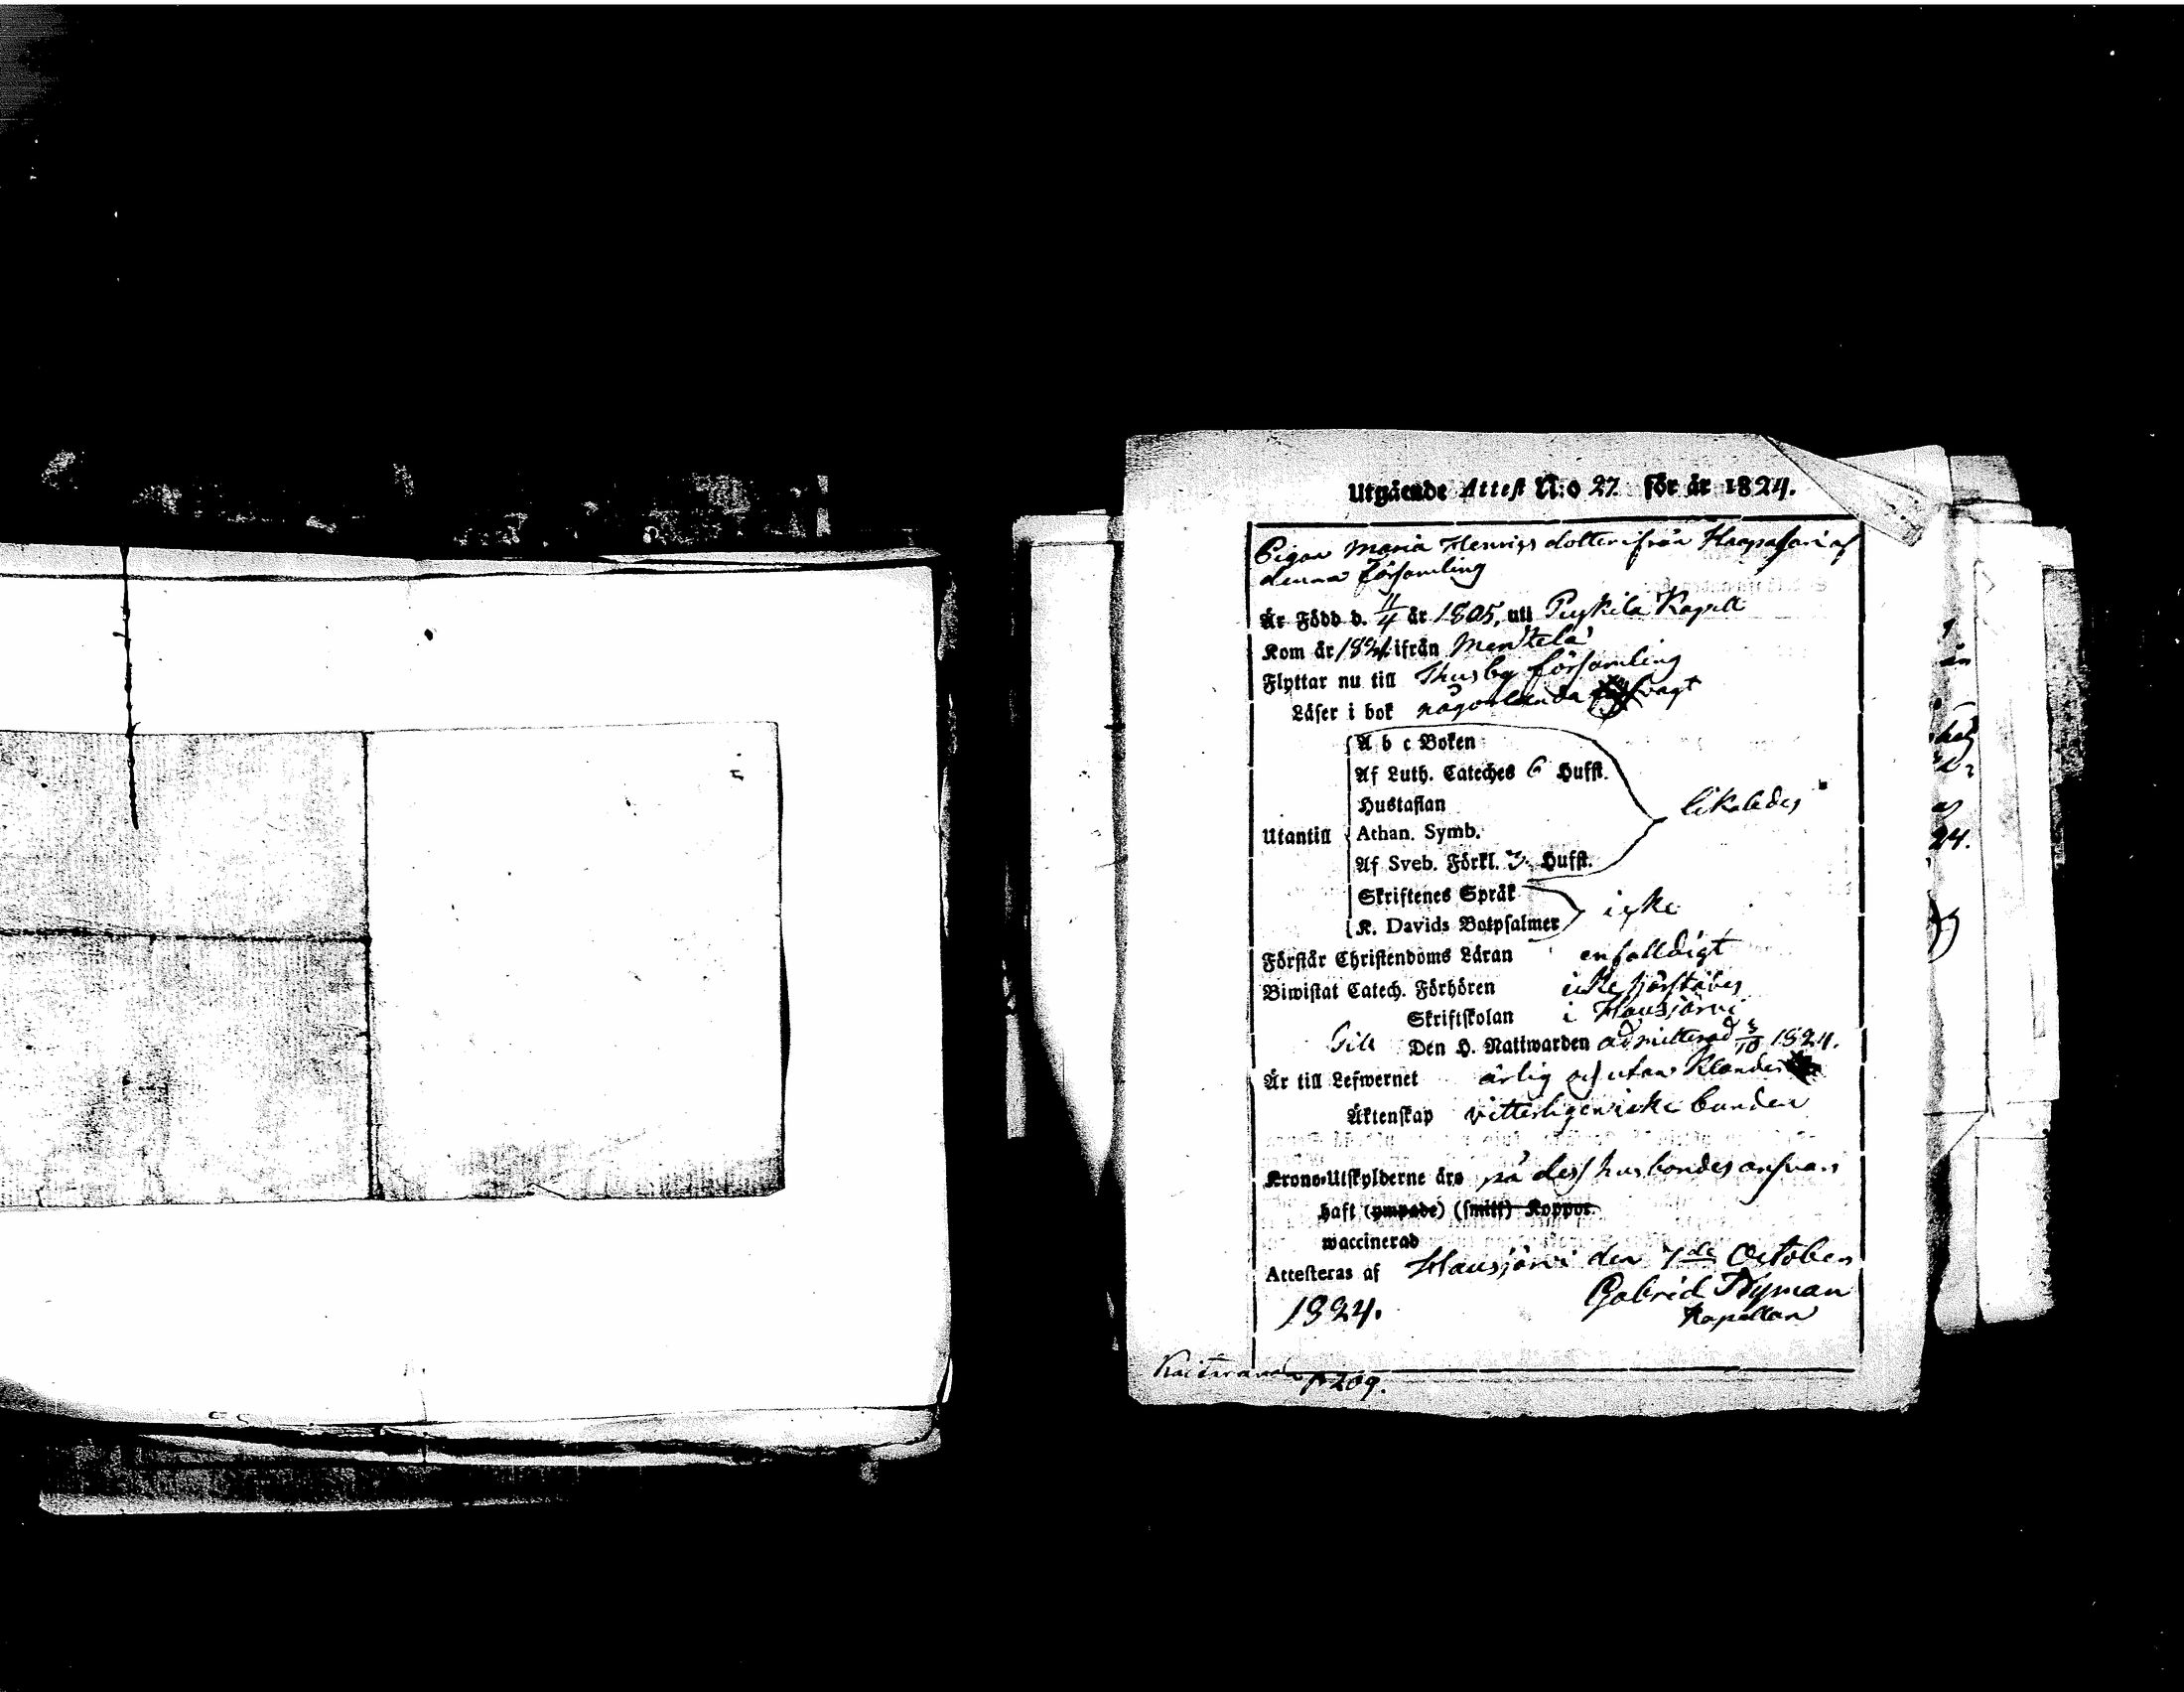 Utgående Attest N:o 27 för år 1824.
Pigan Maria Henrics dotter ifrån Haapasari af
denna församling
Är Född d. 11/4 år 1805, uti Puykila Kapell
Kom år 1821 ifrån Mentelä
Flyttar nu till Thusby församling
Läser i bok någorlunda svagt
A b c Boken
Af Luth. Cateches 6 Hufst.
Hustaflan
likaledes
Utantill Athan. Symb.
Af Sveb. Förkl. 3 Hufst.
Skriftenes Språk
icke
K. Davids Botpsalmer
Förstår Christendoms Läran enfalldigt
Biwistat Catech. Förhören icke
Skriftskolan i Hausjärvi
Den H. Nattwarden admitterad 3/10 1824.
Är till Lefwernet ärlig och utan klander
Äktenskap vitterligen icke bunden
Krono-Utskylderne äro på dess husbondes ansvar
haft (ympade) (smitt) Koppor.
waccinerad
Attesteras af Hausjärvi den 7de October
1824.
Gabriel Nyman
Kapellan
p 209.
24.